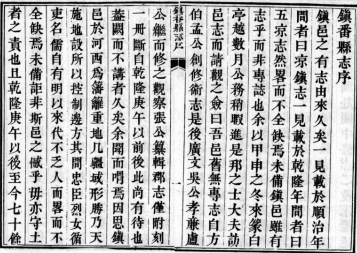 鎮番縣志序
鎮邑之有志由來久矣一見載於順治年
間者曰涼鎮志一見載於乾隆年間者曰
五涼志然畧而不全缺焉未備鎮邑雖有
志乎而非專志也余以甲申之冬來篆白
亭越數月公務稍暇進是邦之士大夫訪
邑志而請觀之僉曰吾邑舊無專志自方
伯孟公創修衛志是後廣文吳公孝亷盧
公繼而修之觀察張公纂輯郡志僅附刻
一冊斷自乾隆庚午以前後此尚有待也
蓋闕而不講者久矣余聞而喟焉因思鎮
邑於河西為藩籬重地凡疆域形勝乃天
施地設所以控制邊方其間忠臣烈女循
吏名儒自有明以來代不乏人而畧而不
全缺焉未備詎非斯邑之憾乎毋亦守土
者之責也且乾隆庚午以後至今七十餘